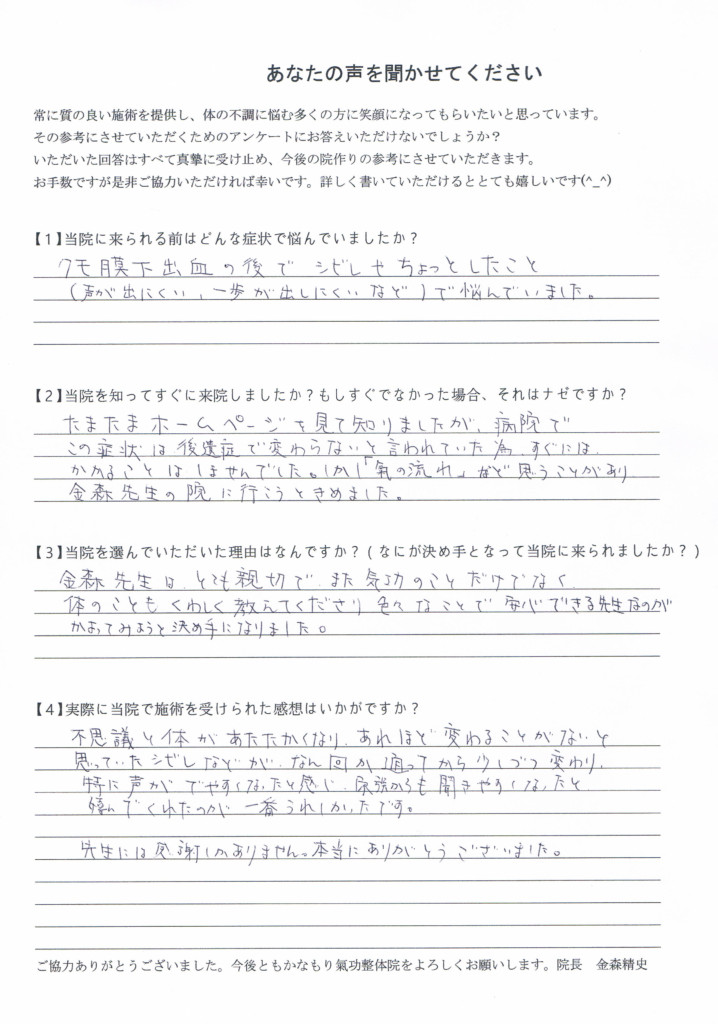 あなたの声を聞かせてください
常に質の良い施術を提供し、体の不調に悩む多くの方に笑顔になってもらいたいと思っています。
その参考にさせていただくためのアンケートにお答えいただけないでしょうか？
いただいた回答はすべて真摯に受け止め、今後の院作りの参考にさせていただきます。
お手数ですが是非ご協力いただければ幸いです。詳しく書いていただけるととても嬉しいです(^_^)
【1】当院に来られる前はどんな症状で悩んでいましたか？
クモ膜下出血の後で シビレやちょっとしたこと
（声が出にくい、一歩が出しにくいなど）で悩んでいました。
【2】当院を知ってすぐに来院しましたか？もしすぐでなかった場合、それはナゼですか？
たまたまホームページを見て知りましたが、病院で
この症状は後遺症で変わらないと言われていた為、すぐには
かかることはしませんでした。しかし「氣の流れ」など思うことがあり
金森先生の院に行こうときめました。
【3】当院を選んでいただいた理由はなんですか？（なにが決め手となって当院に来られましたか？）
金森先生は、とても親切で、また気功のことだけでなく
体のこともくわしく教えてくださり色々なことで安心できる先生なのが
かよってみようと決め手になりました。
【4】実際に当院で施術を受けられた感想はいかがですか？
不思議と体があたたかくなり、あれほど変わることがないと
思っていたシビレなどが、なん回か通ってから少しづつ変わり、
特に声がでやすくなったと感じ、家族からも聞きやすくなったと
喜んでくれたのが一番うれしかったです。
先生には感謝しかありません。本当にありがとうございました。
ご協力ありがとうございました。今後ともかなもり氣功整体院をよろしくお願いします。院長　金森精史